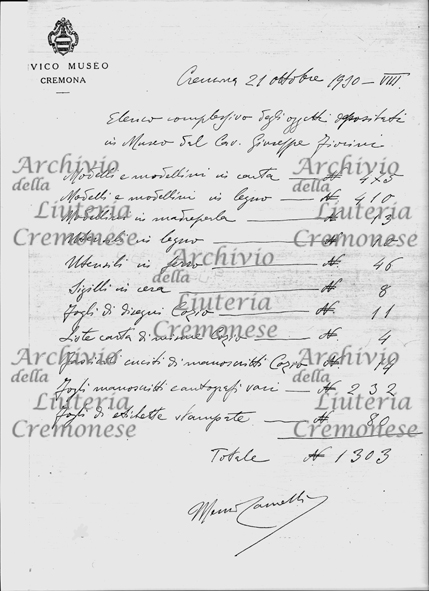 IVICO MUSEO
CREMONA
Cremona 21 ottobre 1930 - VIII.
Elenco complessivo degli oggetti depositati
in Museo dal Cav. Giuseppe Fiorini
Modelli e modellini in carta — N. 475
Modelli e modellini in legno — N. 410
Modellini in madreperla — N. 13
Utensili in legno — N. 10
Utensili in ferro — N. 46
Sigilli in cera — N. 8
Fogli di disegni Cozio — N. 11
Liste carta di misure Cozio — N. 4
cuciti di manoscritti Cozio N. 14
Fogli manoscritti e autografi vari — N. 232
Fogli di etichette stampate — N. 80
Totale N 1303
Archivio
della
Liuteria
Cremonese
Archivio
della
Liuteria
Cremonese
Archivio
della
Liuteria
Cremonese
Archivio
della
Liuteria
Cremonese
Archivio
della
Liuteria
Cremonese